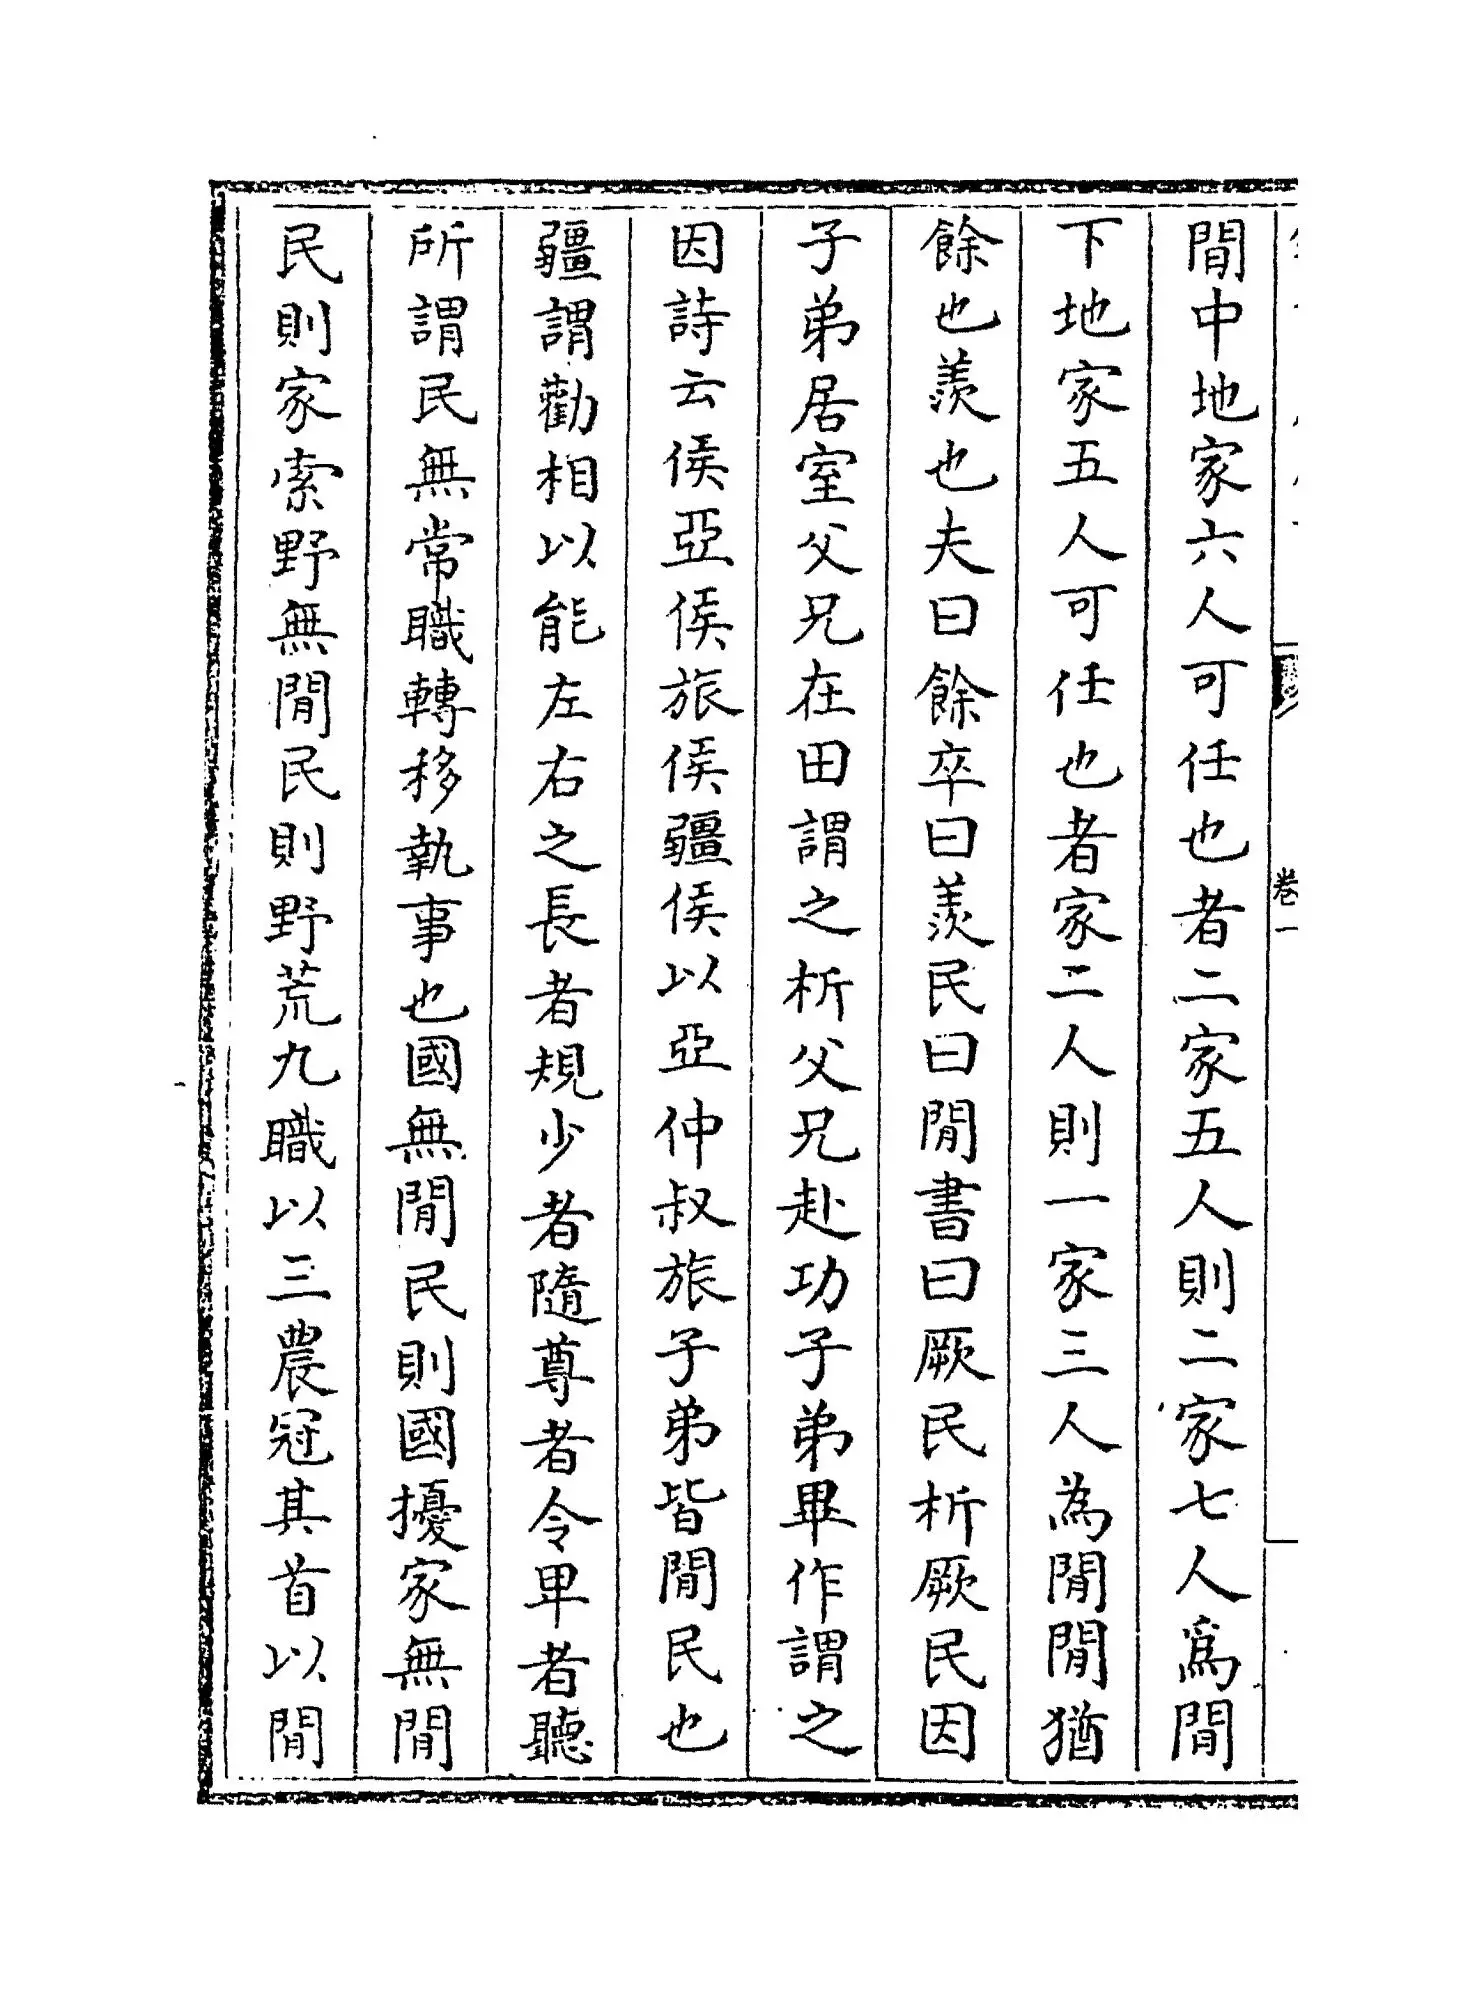 卷一
閒中地家六人可任也者二家五人則二家七人爲閒
下地家五人可任也者家二人則一家三人為閒閒猶
餘也羨也夫曰餘卒曰羨民曰閒書曰厥民析厥民因
子弟居室父兄在田謂之析父兄赴功子弟畢作謂之
因詩云侯亞侯旅侯疆侯以亞仲叔旅子弟皆閒民也
疆謂勸相以能左右之長者規少者隨尊者令卑者聽
所謂民無常職轉移執事也國無閒民則國擾家無閒
民則家索野無閒民則野荒九職以三農冠其首以閒